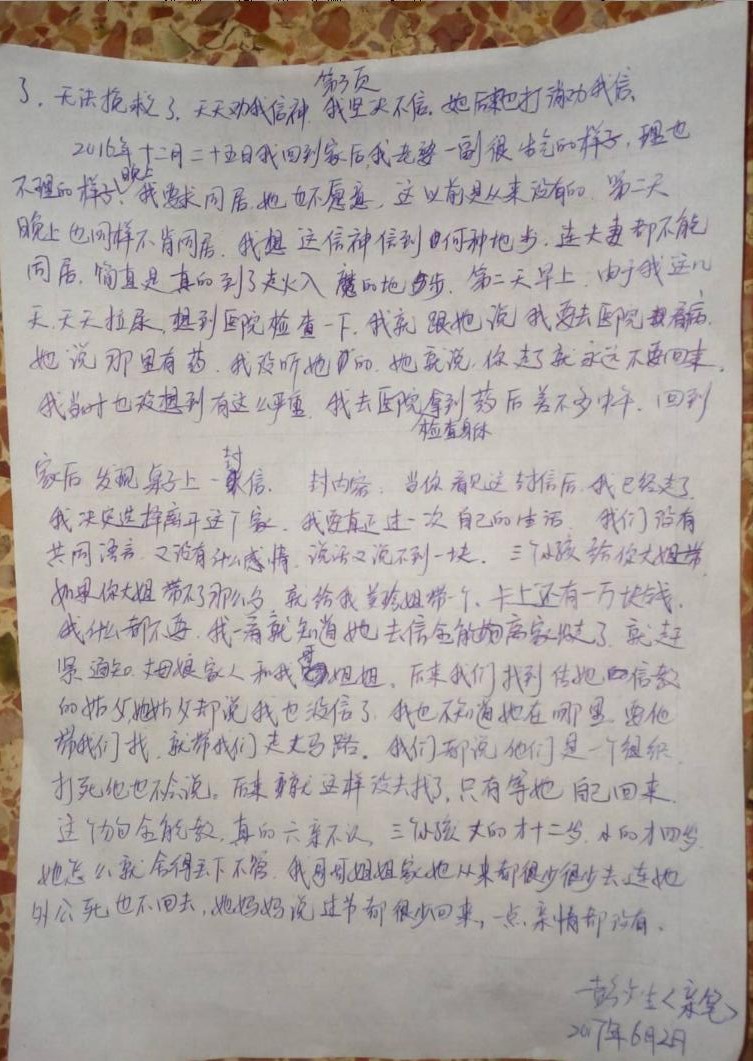 第3页
了，无法挽救了，天天劝我信神，我坚决不信，她后来也打消劝我信。
2016年十二月二十五日我回到家后，我老婆一副很生气的样子，理也
不理的样子，晚上我要求同居，她也不愿意，这以前是从来没有的，第二天
晚上也同样不肯同居，我想这信神信到何种地步，连夫妻都不能
同居，简直是真的到了走火入魔的地步，第二天早上，由于我这几
天，天天拉尿，想到医院检查一下，我就跟她说我要去医院看病，
她说那里有药，我没听她的，她就说，你走了就永远不要回来，
我当时也没想到有这么严重，我去医院拿到药后差不多中午，回到
检查身体
家后发现桌子上一封信， 封内容，当你看见这封信后，我已经走了
我决定选择离开这个家，我要真正过一次自己的生活，我们没有
共同语言，又没有什么感情，说话又说不到一块，三个小孩给你大姐带，
如果你大姐带不了那么多，就给我姐带一个，卡上还有一万块钱，
我什么都不要，我一看就知道她去信全能神离家出走了，就赶
紧通知丈母娘家人和我哥姐姐，后来我们找到传她信教
的姑父，她姑父却说我也没信了，我也不知道她在哪里，要他
带我们找，就带我们走大马路，我们都说他们是一个组织
打死他也不会说。后来就这样没去找了，只有等她自己回来，
这个全能教，真的六亲不认，三个小孩大的才十二岁，小的才四岁，
她怎么就舍得丢下不管，我哥哥姐姐家她从来都很少很少去，连她
外公死也不回去，她妈妈说过节都很少回来，一点亲情都没有。
彭生〈亲笔〉
2017年6月2日